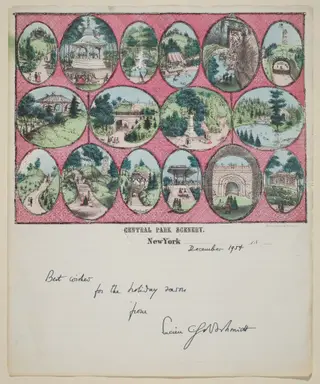 CENTRAL PARK SCENERY.
New York
December 1954
Best wishes
for the holiday season
from
Lucien Goldschmidt